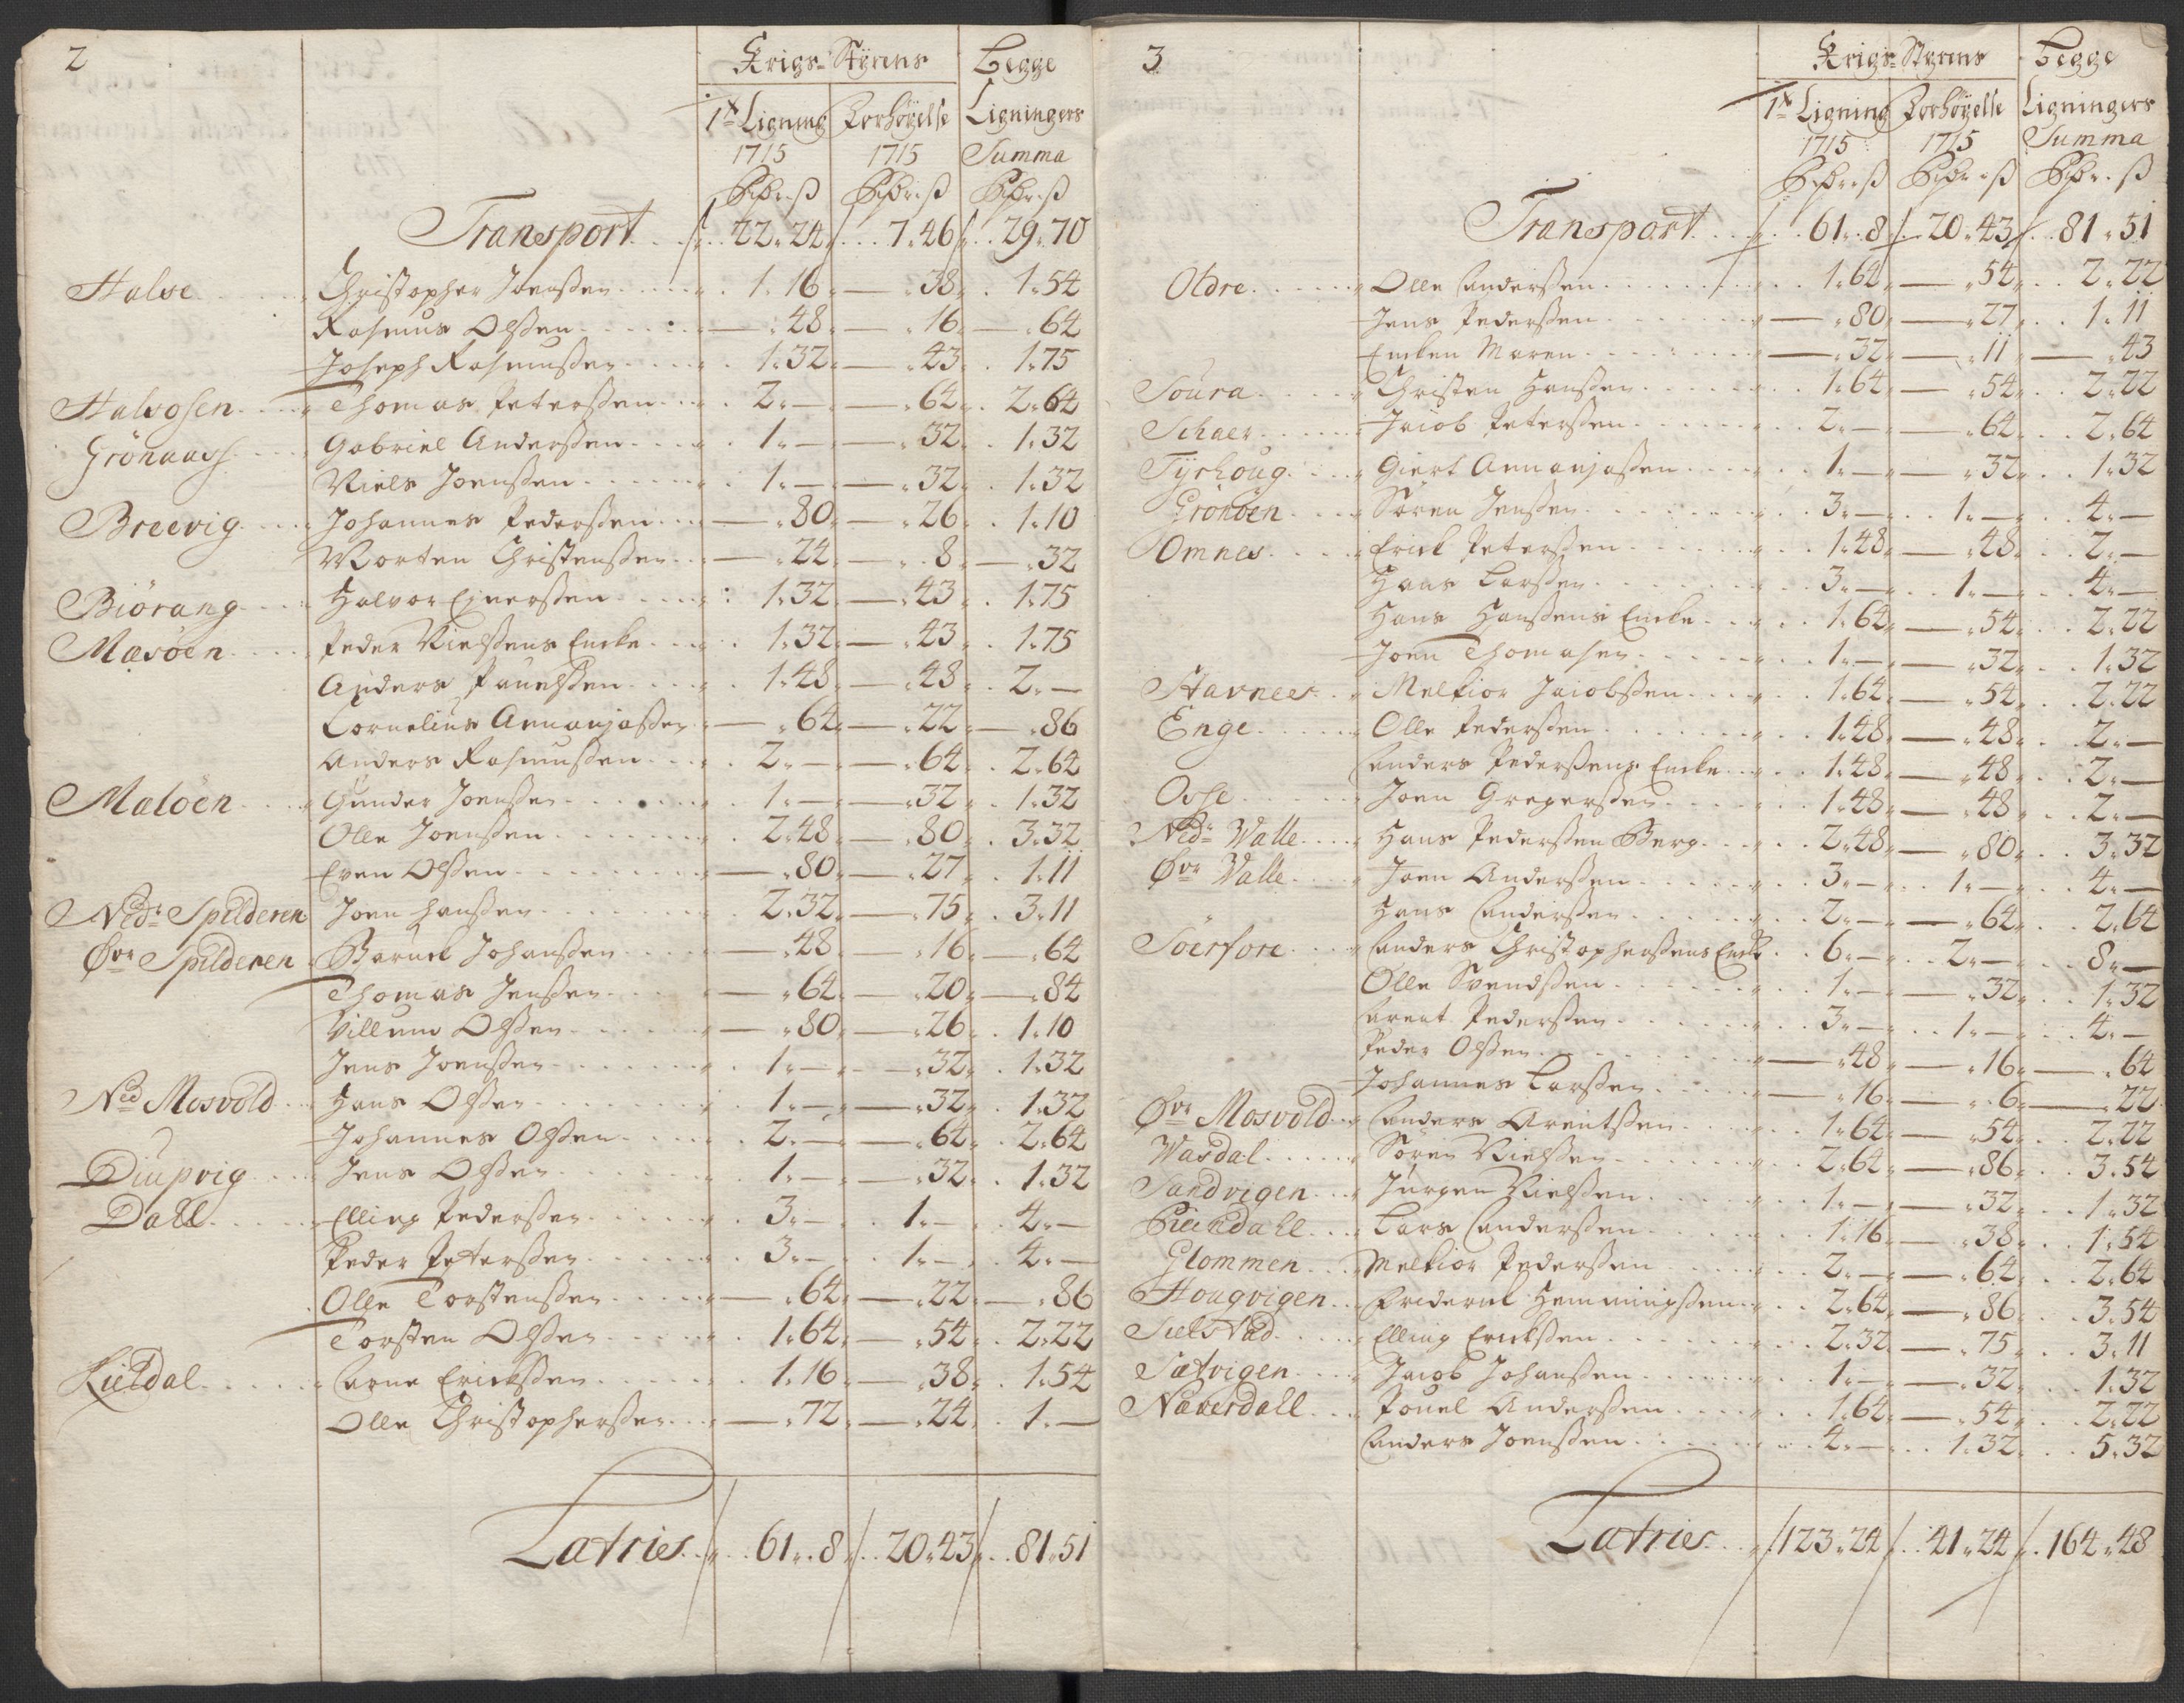 2
Krigs-Styrens Begge
1te Ligning Forhöyelse Ligningers
1715 1715 Summa
Rdr. ß Rdr. ß Rdr. ß
Transport 22. 24. 7. 46. 29. 70
Halse Christopher Joenßen 1. 16. — 38. 1. 54
Rasmus Olßen — 48. — 16. — 64
Joseph Rasmußen 1. 32. — 43. 1. 75
Halsosen Thomas Peterßen 2. — — 64. 2. 64
Grönaass Gabriel Anderßen 1. — — 32. 1. 32
Niels Joenßen 1. — — 32. 1. 32
Breevig Johannes Pederßen — 80. — 26. 1. 10
Morten Christenßen — 24. — 8. — 32
Biörang Halvor Ejnerßen 1. 32. — 43. 1. 75
Mæsöen Peder Nielßens Encke 1. 32. — 43. 1. 75
Anders Pauelßen 1. 48. — 48. 2. —
Cornelius Annanjaßen — 64. — 22. — 86
Anders Rasmußen 2. — — 64. 2. 64
Maløen Gunder Joenßen 1. — — 32. 1. 32
Olle Joenßen 2. 48. — 80. 3. 32
Even Olßen — 80. — 27. 1. 11
Nedr Spilderen Joen Hanßen 2. 32. — 75. 3. 11
Øvr Spilderen Baruck Johanßen — 48. — 16. — 64
Thomas Jenßen — 64. — 20. — 84
Villum Olßen — 80. — 26. 1. 10
Jens Joenßen 1. — — 32. 1. 32
Ned Mosvold Hans Olßen 1. — — 32. 1. 32
Johannes Olßen 2. — — 64. 2. 64
Diupvig Jens Olßen 1. — — 32. 1. 32
Dall Elling Pederßen 3. — 1. — 4. —
Peder Petterßen 3. — 1. — 4. —
Olle Torstenßen — 64. — 22. — 86
Torsten Olßen 1. 64. — 54. 2. 22
Kieldal Arne Erickßen 1. 16. — 38. 1. 54
Olle Christopherßen — 72. — 24. 1. —
Latries 61. 8. 20. 43. 81. 51
3
Krigs-Styrens Begge
1te Ligning Forhöyelse Ligningers
1715 1715 Summa
Rdr. ß Rdr. ß Rdr. ß
Transport 61. 8. 20. 43. 81. 51
Oldre Olle Anderßen 1. 64. — 54. 2. 22
Jens Pederßen — 80. — 27. 1. 11
Encken Maren — 32. — 11. — 43
Soura Christen Hanßen 1. 64. — 54. 2. 22
Schaer Jacob Peterßen 2. — — 64. 2. 64
Tyrhoug Giert Annanjaßen 1. — — 32. 1. 32
Grönöen Sören Jenßen 3. — 1. — 4. —
Omnes Erick Peterßen 1. 48. — 48. 2. —
Hans Larßen 3. — 1. — 4. —
Hans Hanßens Encke 1. 64. — 54. 2. 22
Joen Thomasen 1. — — 32. 1. 32
Stavnees Melkior Jacobßen 1. 64. — 54. 2. 22
Enge Olle Pederßen 1. 48. — 48. 2. —
Anders Pederßens Encke 1. 48. — 48. 2. —
Osse Joen Gregerßen 1. 48. — 48. 2. —
Nedr Walle Hans Pederßen Berg 2. 48. — 80. 3. 32
Øvr Valle Joen Anderßen 3. — 1. — 4. —
" Hans Anderßen 2. — — 64. 2. 64
Söerfore Anders Christopherßens Encke 6. — 2. — 8. —
Olle Svendßen 1. — — 32. 1. 32
Arent Pederßen 3. — 1. — 4. —
Peder Olßen — 48. — 16. — 64
Johannes Larßen — 16. — 6. — 22
Øvr Mosvold Anders Arentßen 1. 64. — 54. 2. 22
Wasdal Sören Nielßen 2. 64. — 86. 3. 54
Sandvigen Jürgen Nielßen 1. — — 32. 1. 32
Lars Anderßen 1. 16. — 38. 1. 54
Glommen Melkior Pederßen 2. — — 64. 2. 64
Hougvigen Friderick Hemmingßen 2. 64. — 86. 3. 54
Elling Erickßen 2. 32. — 75. 3. 11
Sætvigen Jacob Johanßen 1. — — 32. 1. 32
Næverdall Pouel Anderßen 1. 64. — 54. 2. 22
Anders Joenßen 4. — 1. 32. 5. 32
Latries 123. 24. 41. 24. 164. 48